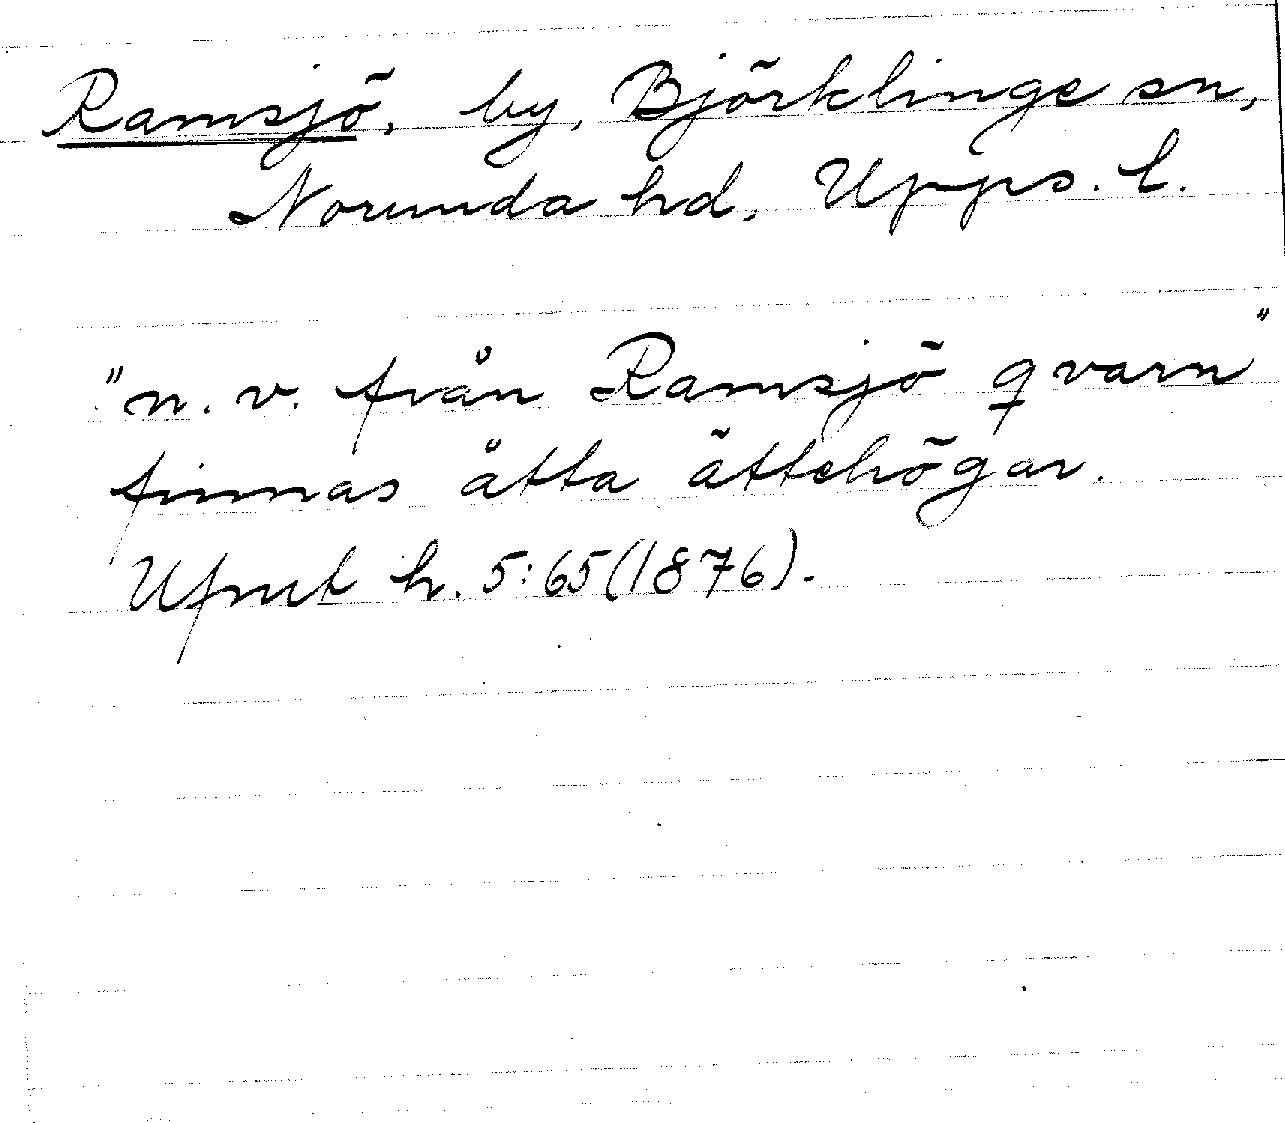 Ramsjö, by, Björklinge sn,
Norunda hd, Upps. l.
"n. v. från Ramsjö qvarn"
finnas åtta ättehögar.
Ufmt h. 5:65(1876).